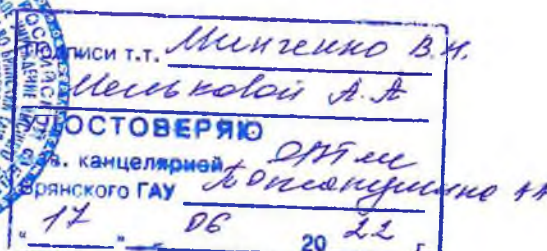 Подписи т.т. Минченко В.Н.
Мельковой А.А
УДОСТОВЕРЯЮ
Зав. канцелярией
Брянского ГАУ
"17" 06 2022 г.